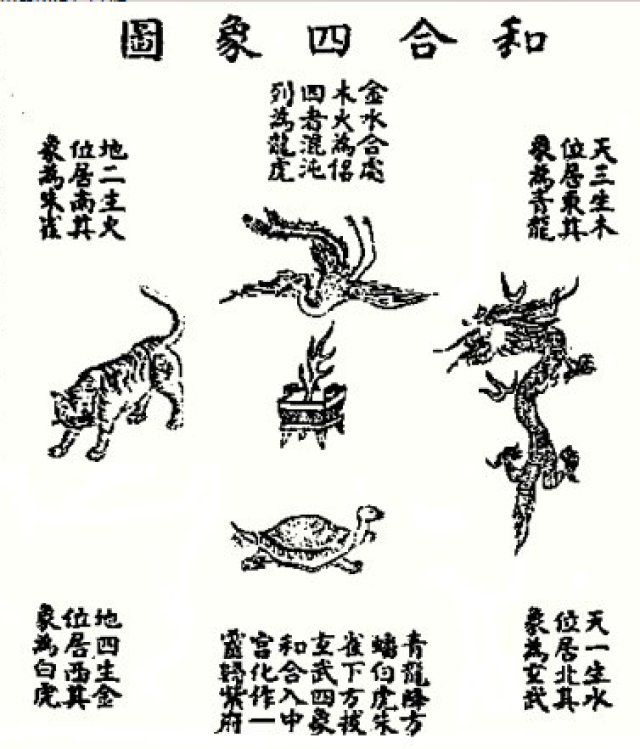 和合四象圖
金水合處
木火為侶
四者混沌
列為龍虎
天三生木
位居東其
象為青龍
地二生火
位居南其
象為朱雀
天一生水
位居北其
象為玄武
青龍降方
蟠向虎朱
雀下方拔
玄武四象
和合入中
宮化作一
靈歸紫府
地四生金
位居西其
象為白虎